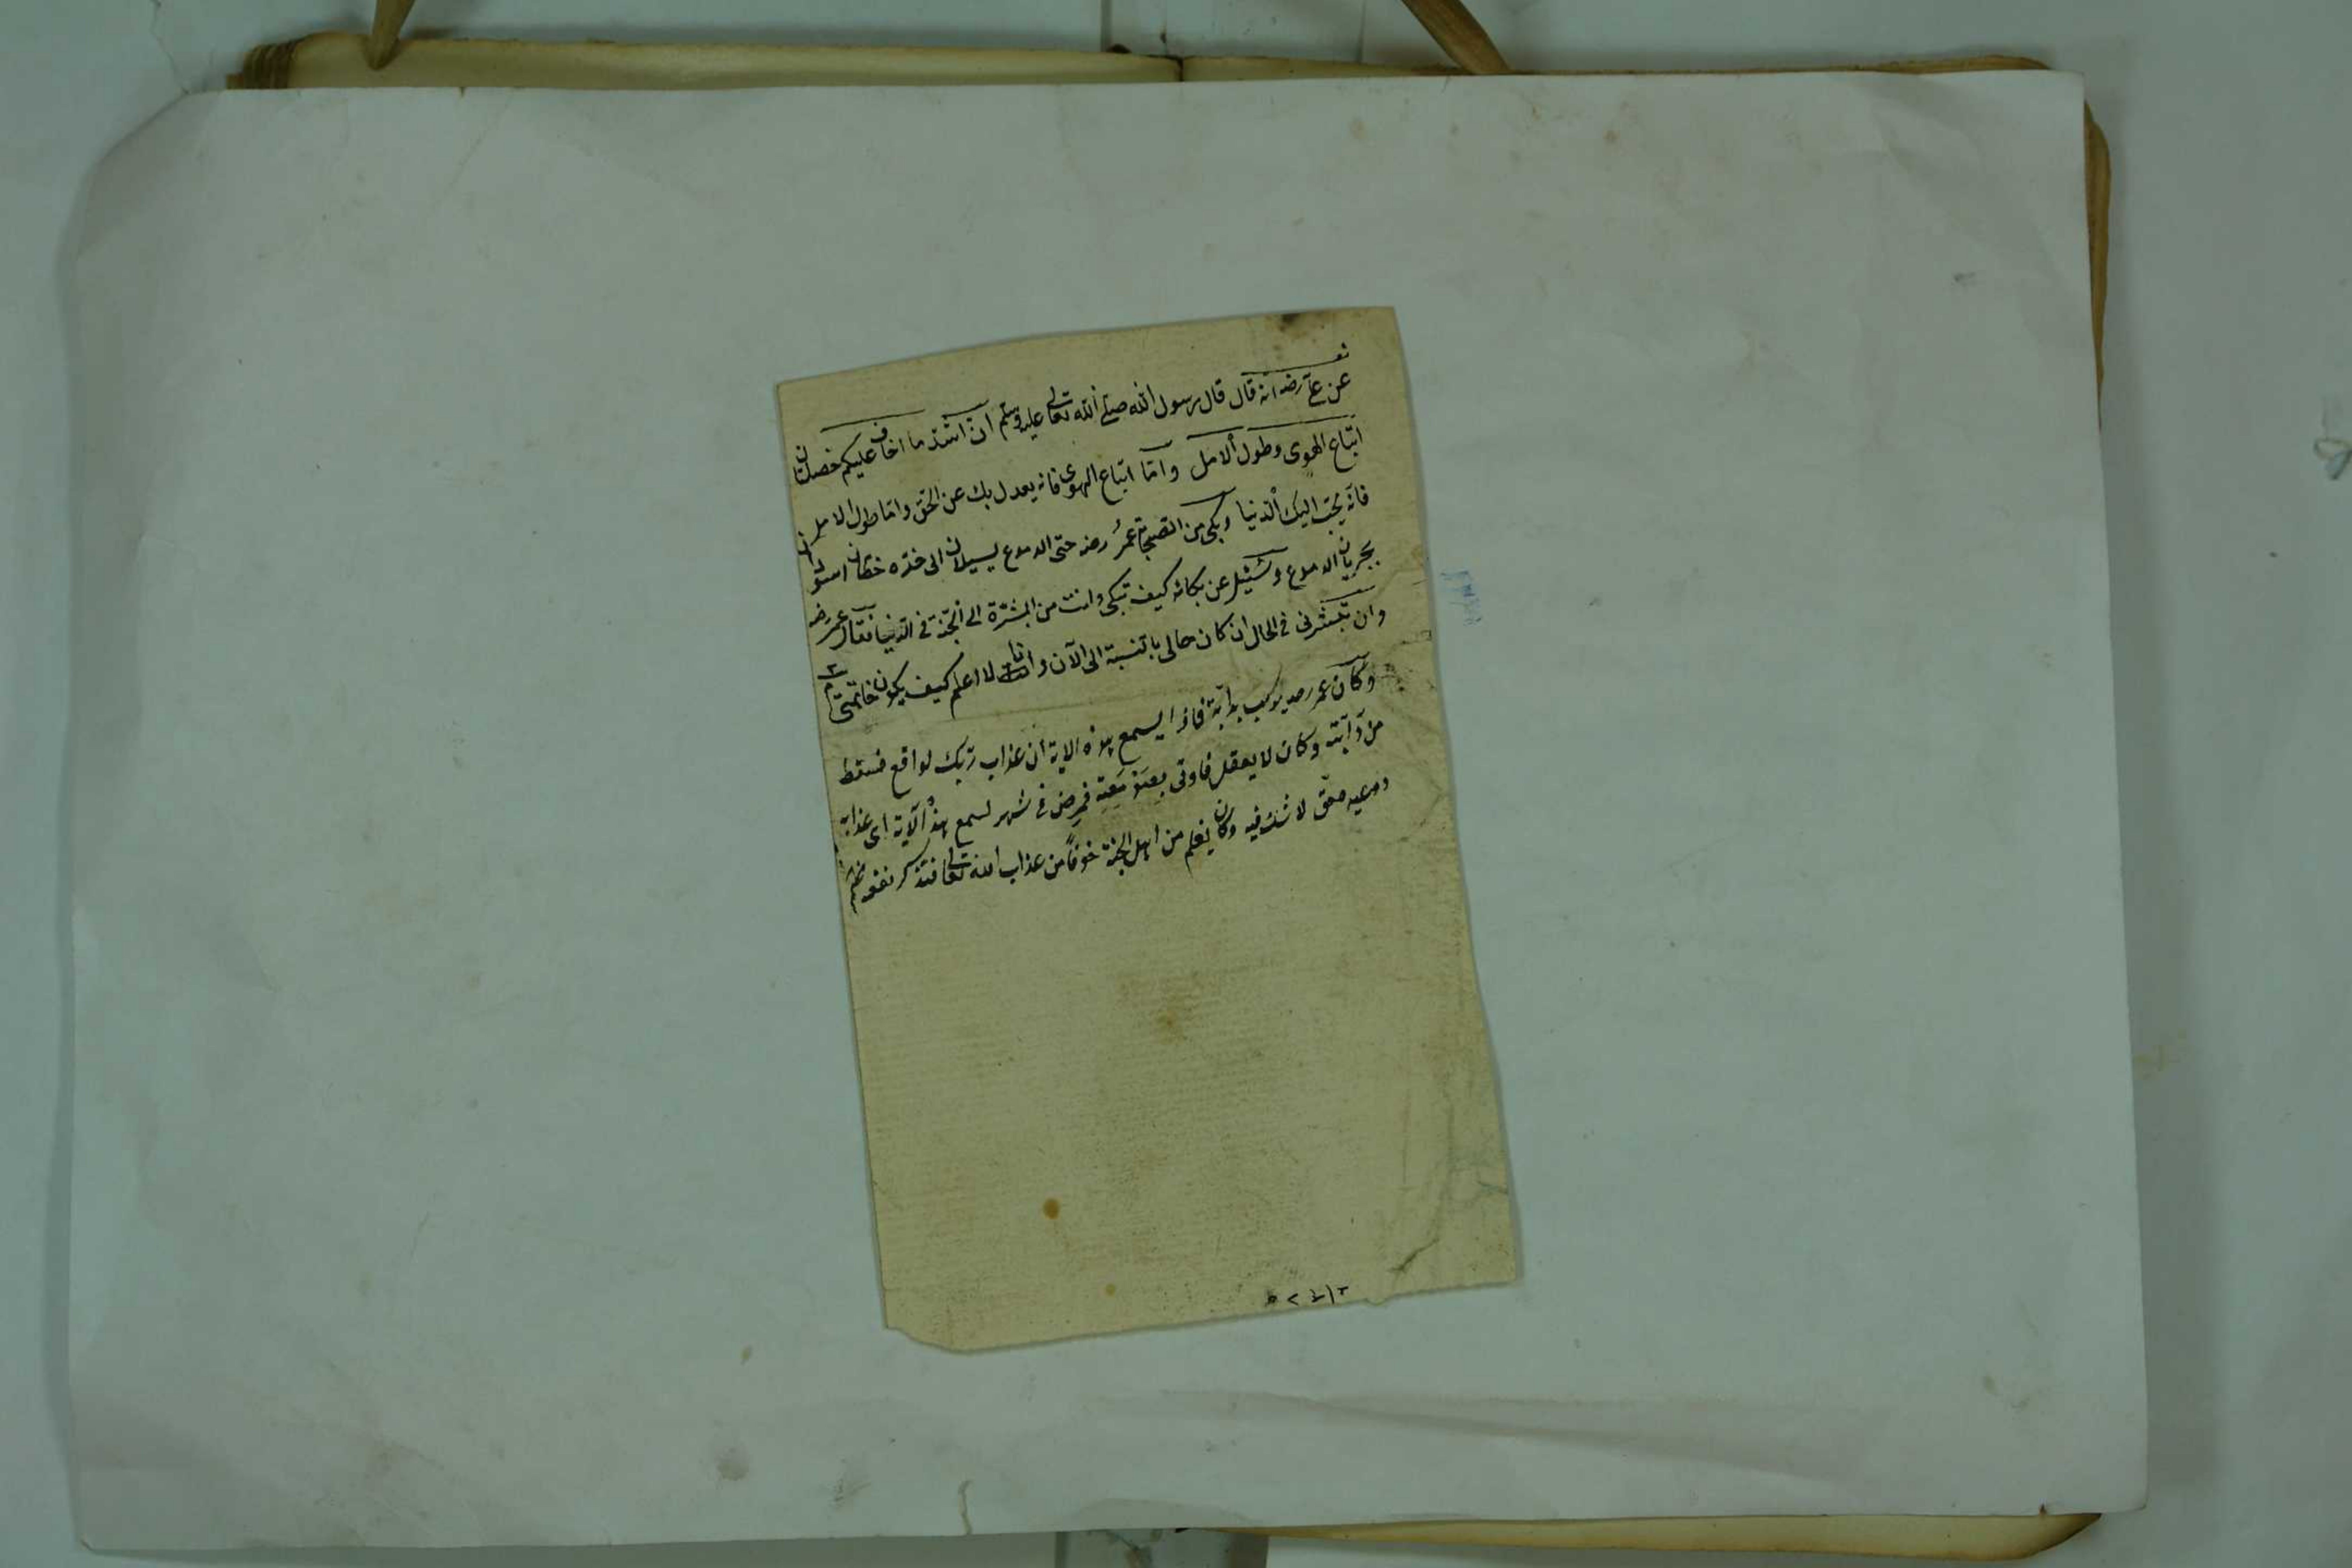 عن علي رضه انه قال قال رسول الله صلى الله تعالى عليه وسلم ان اشد ما اخاف عليكم خصلتان
اتباع الهوى وطول الامل واما اتباع الهوى فانه يعدل بك عن الحق واما طول الامل
فانه يحبّ اليك الدنيا وبكى من الصحابة عمر رضه حتى الدموع يسيلان الى خده خطان اسودان
بجريان الدموع وسئل عن بكائه كيف تبكى وانت من المبشرة الى الجنة فى الدنيا فقال عمر رضه
وان تبشرنى فى الحال ان كان حالى بالنسبة الى الآن وانا لا اعلم كيف يكون خاتمتى م
وكان عمر رضه يركب بدابة فاذا يسمع بهذه الاية ان عذاب ربك لواقع فسقط
من دابته وكان لا يعقل فاوتى بيته فمرض فى شهر لسمع هذا الآية اى عذابه
حق لا شك فيه وكان يعلم من اهل الجنة خوفا من عذاب الله تعالى فتذكر